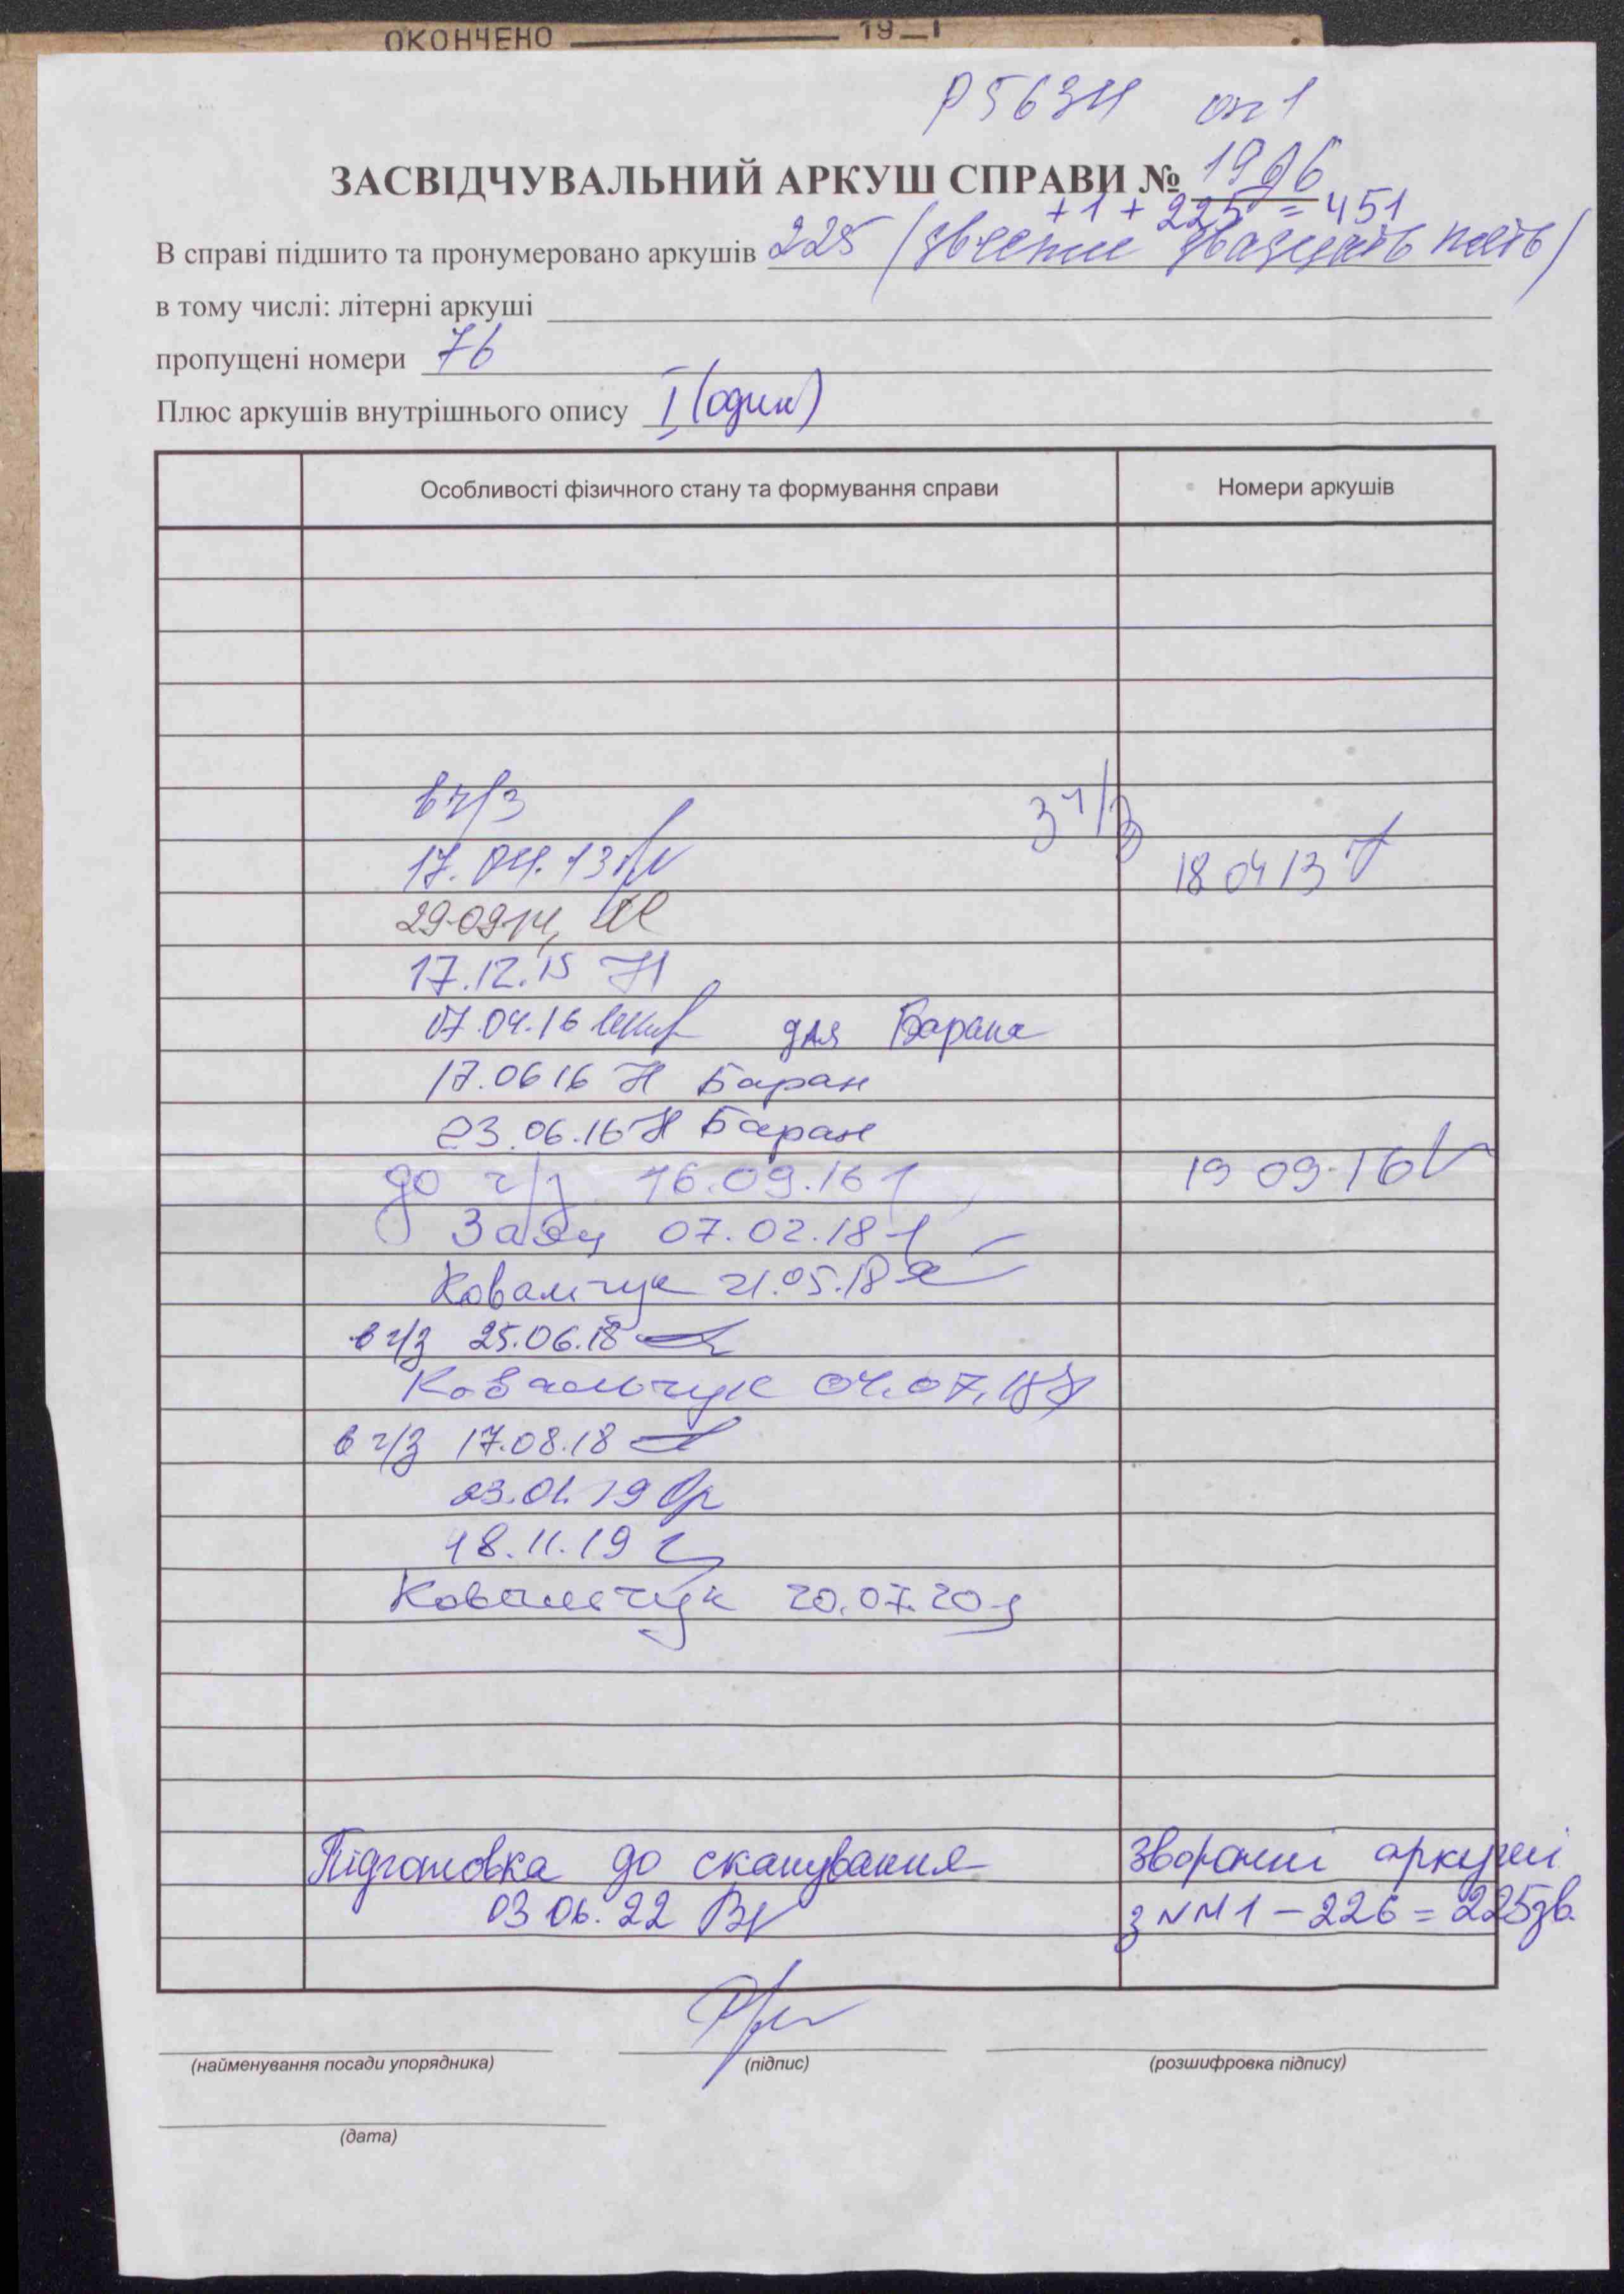 ОКОНЧЕНО 19
Р5634 оп 1
ЗАСВІДЧУВАЛЬНИЙ АРКУШ СПРАВИ № 1906
+1 + 225 = 451
В справі підшито та пронумеровано аркушів 225 (двести двадцать пять)
в тому числі: літерні аркуші
пропущені номери 76
Плюс аркушів внутрішнього опису 1 (один)
Особливості фізичного стану та формування справи Номери аркушів
в ч/з з ч/з
17.04.13 18 04 13
29.09.14,
17.12.15 Н
07.04.16 для Барана
17.06 16 Н Баран
23.06.16 Н Баран
до ч/з 16.09.16 19 09.16
Заяц 07.02.18
Ковальчук 21.05.18
в ч/з 25.06.18
Ковальчук 04.07.18
в ч/з 17.08.18
23.01.19
18.11.19
Ковальчук 20.07.20
Підготовка до сканування Зворотні аркуші
03 06.22 з NN 1 – 226 = 225 зв.
(найменування посади упорядника) (підпис) (розшифровка підпису)
(дата)